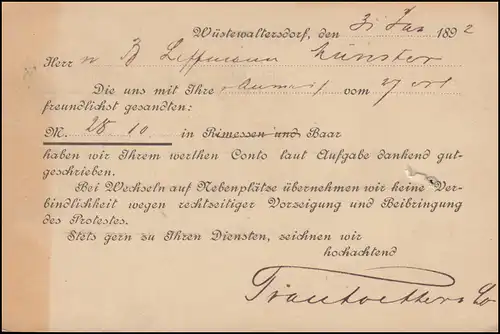 Wüstewaltersdorf, den 31 Jan 1892
Herr B Leffmann Münster
Die uns mit Ihre vom
freundlichst gesandten:
M. 28 10 in Rimessen und Baar
haben wir Ihrem werthen Conto laut Aufgabe dankend gut-
geschrieben.
Bei Wechseln auf Nebenplätze übernehmen wir keine Ver-
bindlichkeit wegen rechtseitiger Vorzeigung und Beibringung
des Protestes.
Stets gern zu Ihren Diensten, zeichnen wir
hochachtend